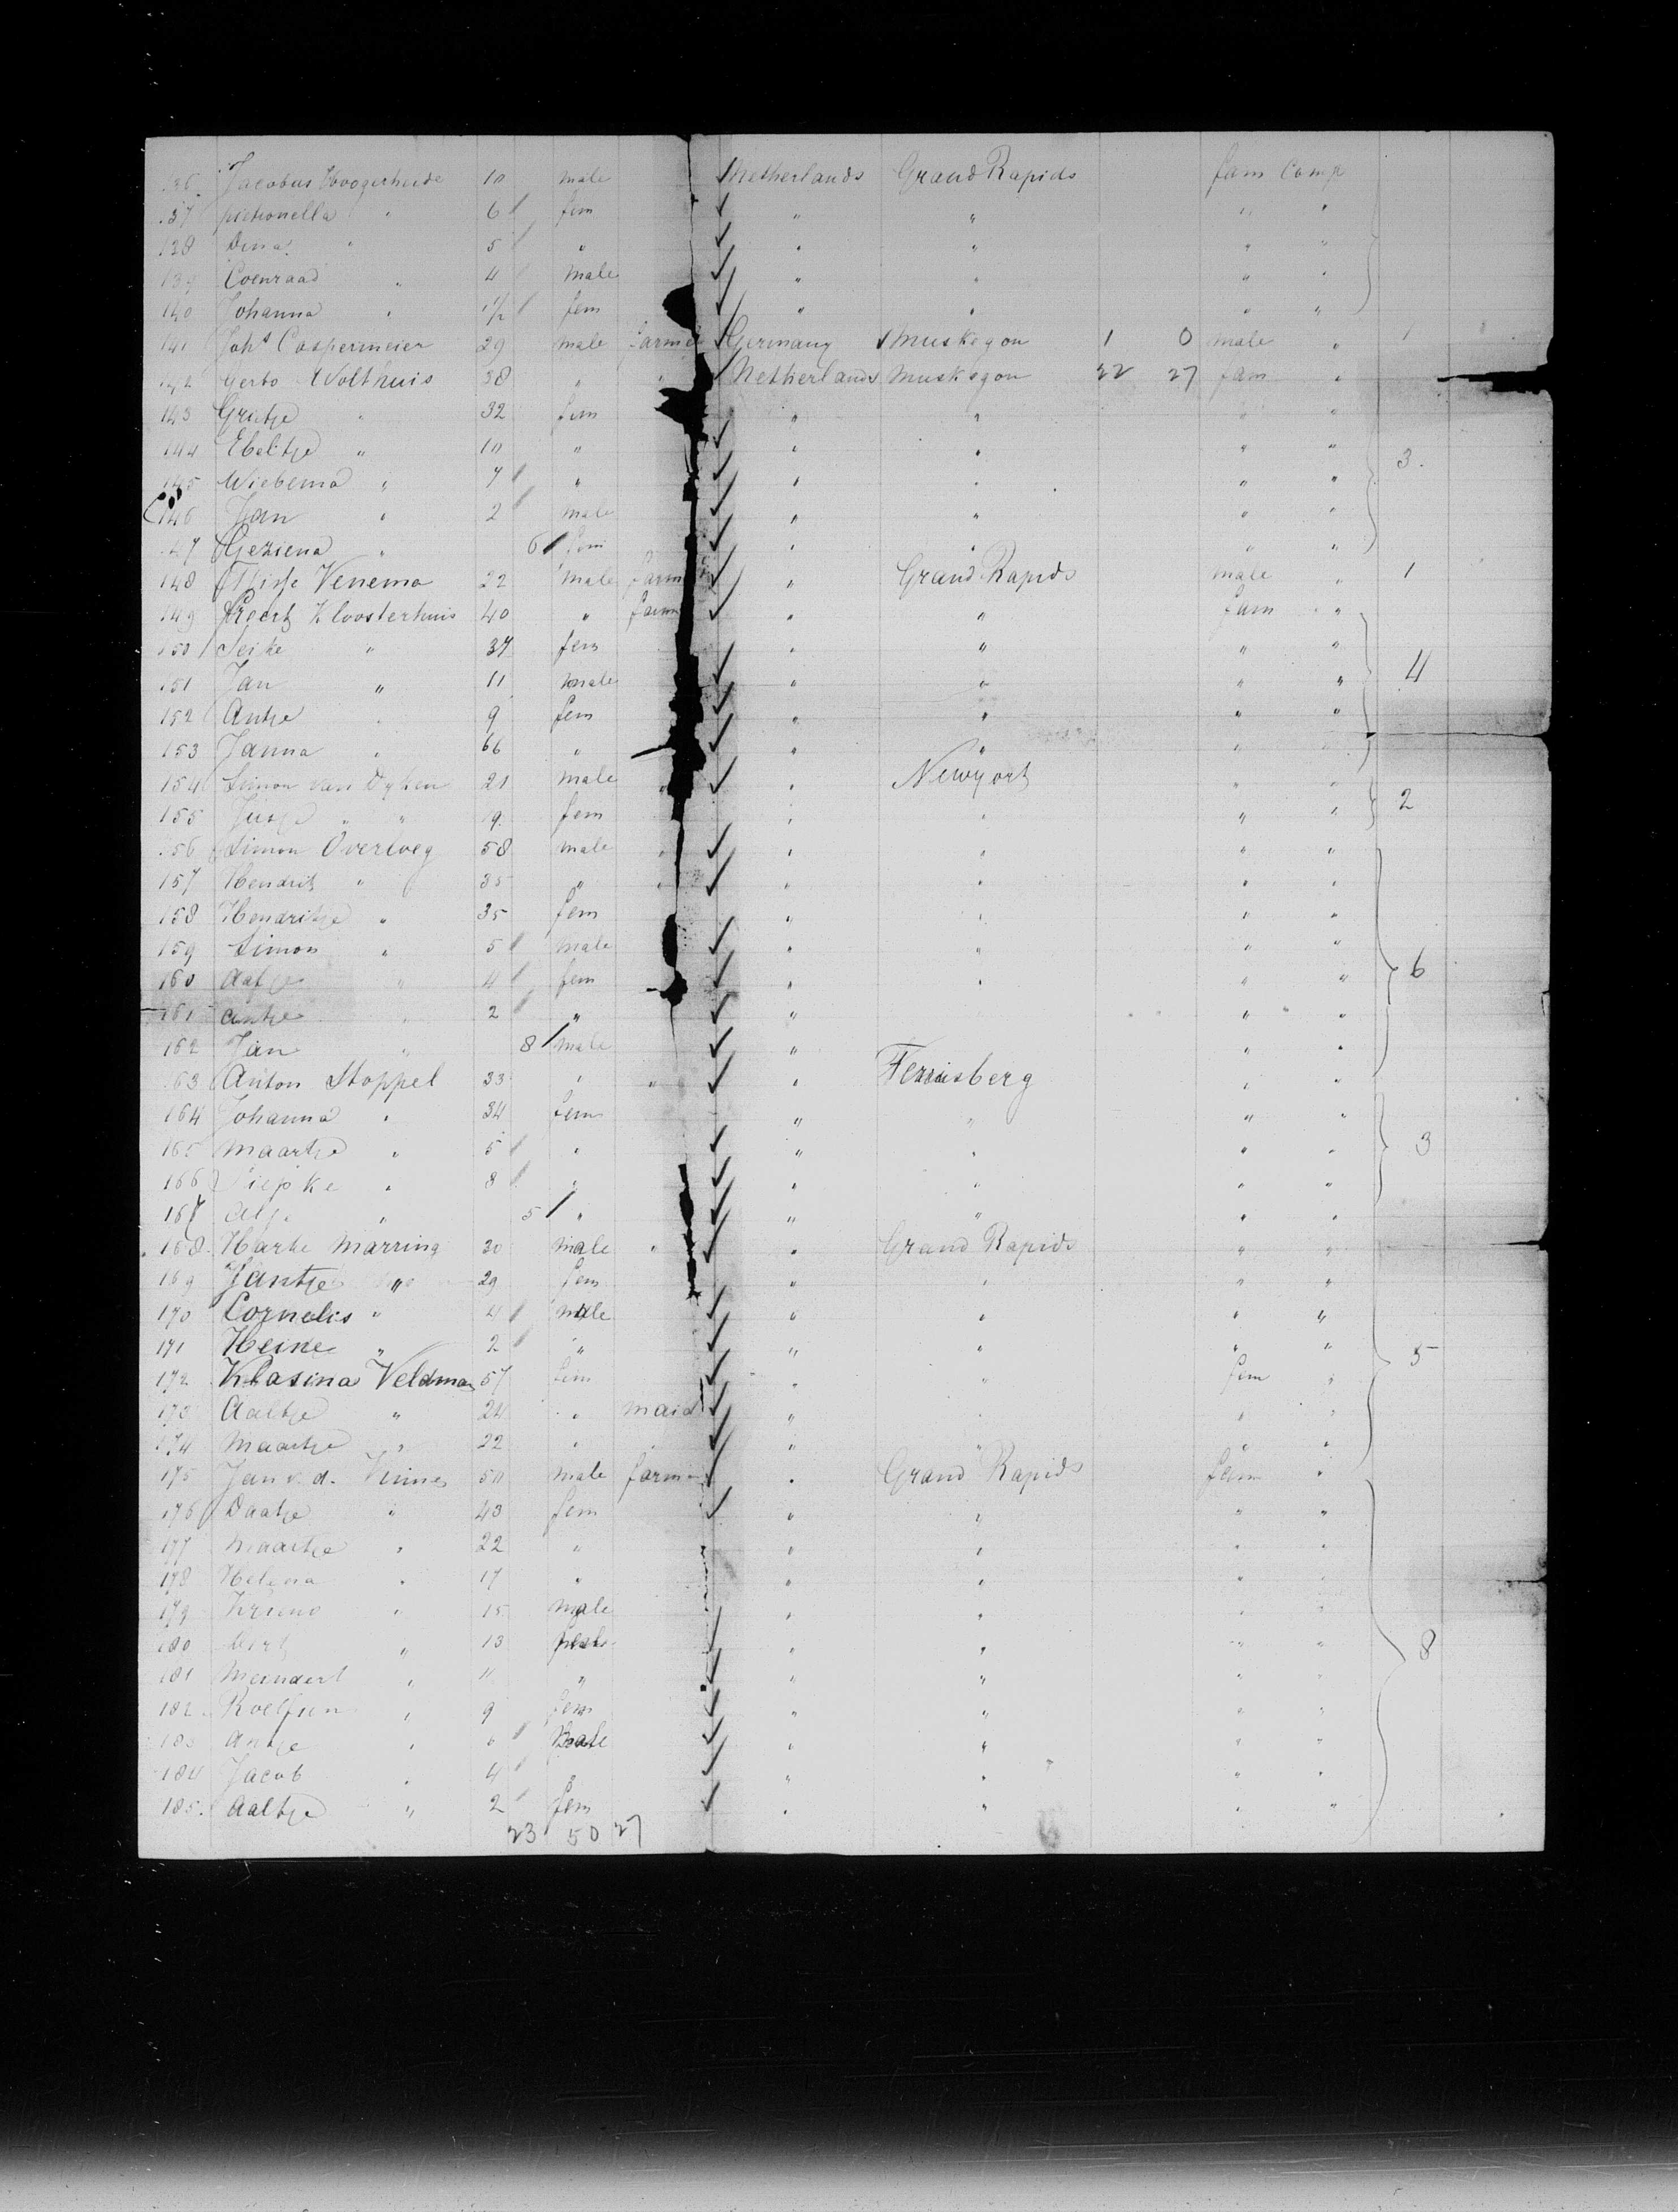 136. Jacobus Hoogerheide 10 male Netherlands Grand Rapids fam Comp
137 pietronella " 6 fem " " " "
138 Dina " 5 " " " " "
139 Coenraad " 4 male " " " "
140 Johanna " 1½ fem " " " "
141 Joh^s Caspermeier 29 male farmer Germany Muskegon 1 0 male " 1
142 Gerbo Wolthuis 38 " " Netherlands Muskegon 22 27 fam "
143 Grietje " 32 fem " " " "
144 Ebelitje " 10 " " " " "
145 Wiebema " 7 " " " " " 3.
146 Jan " 2 male " " " "
147 Geziena " 6 fem " " " "
148 Venema 22 male farm " Grand Rapids male " 1
149 Kloosterhuis 40 " farm " " fam "
150 Seike " 37 fem " " " "
151 Jan " 11 male " " " " 4
152 Antje " 9 fem " " " "
153 Janna " 66 " " " " "
154 Simon van Dyken 21 male " " Newyork " "
155 " " 19. fem " " " " 2
156 Simon Overweg 58 male " " " " "
157 Hendrik " 35 " " " " " "
158 Hendrikje " 35 fem " " " "
159 Simon " 5 male " " " "
160 Aafje " 4 fem " " " " 6
161 Antje " 2 " " " " "
162 Jan " 8 male " " "
163 Anton Stoppel 33 " " " Ferrisberg " "
164 Johanna " 34 fem " " " "
165 Maartje " 5 " " " " " 3
166 Siepke " 8 " " " " "
167 " 5 " " " " "
168. Harke Marring 30 male " " Grand Rapids " "
169 Jantje " 29 fem " " " "
170 Cornelis " 4 male " " " "
171 Heine " 2 " " " " " 5
172 Klasina Veldman 57 fem " " fem "
173 Aaltje " 24 " maid " " " "
174 Maartje " 22 " " " " " "
175 Jan v. d. 50 male farm " Grand Rapids fam "
176 Daatje " 43 fem " " " "
177 Maartje " 22 " " " " "
178 Helena " 17 " " " " "
179 " 15 male " " " "
180 " 13 " " " " 8
181 Meindert " 11 " " " " "
182. " 9 fem " " " "
183 Antje " 6 male " " " "
184 Jacob " 4 " " " " "
185. Aaltje " 2 fem " " " "
23 50 27